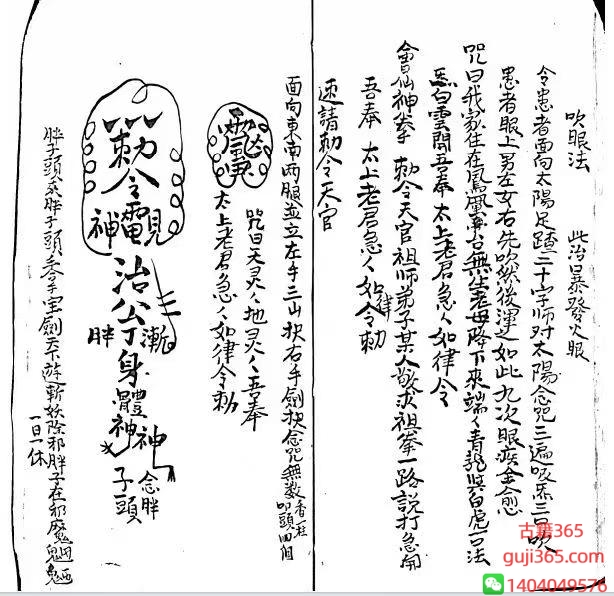 吹眼法　此治暴發火眼
令患者面向太陽足踏二十字師对太陽念咒三遍吸炁三口吹
患者眼上男左女右先吹然後運之如此九次眼疾全愈
咒曰我家住在鳳凰寺台無生老母降下來端々青龍與白虎一口法
炁白雲開吾奉太上老君急々如律令
會仙神拳 勅令天官祖師弟子某人敬求祖拳一路説打急開
吾奉 太上老君急々如律令勅
速請勅令天官
面向東南两腿並立左手三山抉右手劍抉念咒無数香一柱叩頭四個
咒曰天灵々地灵々吾奉
太上老君急々如律令勅
勅令
神
治公身體
胖
神
念胖
子頭
胖子頭來胖子頭手拿宝劍天下遊斬妖除邪胖子在邪魔魍魎魑魅
一日一休
古籍365
guji365.com
1404049576